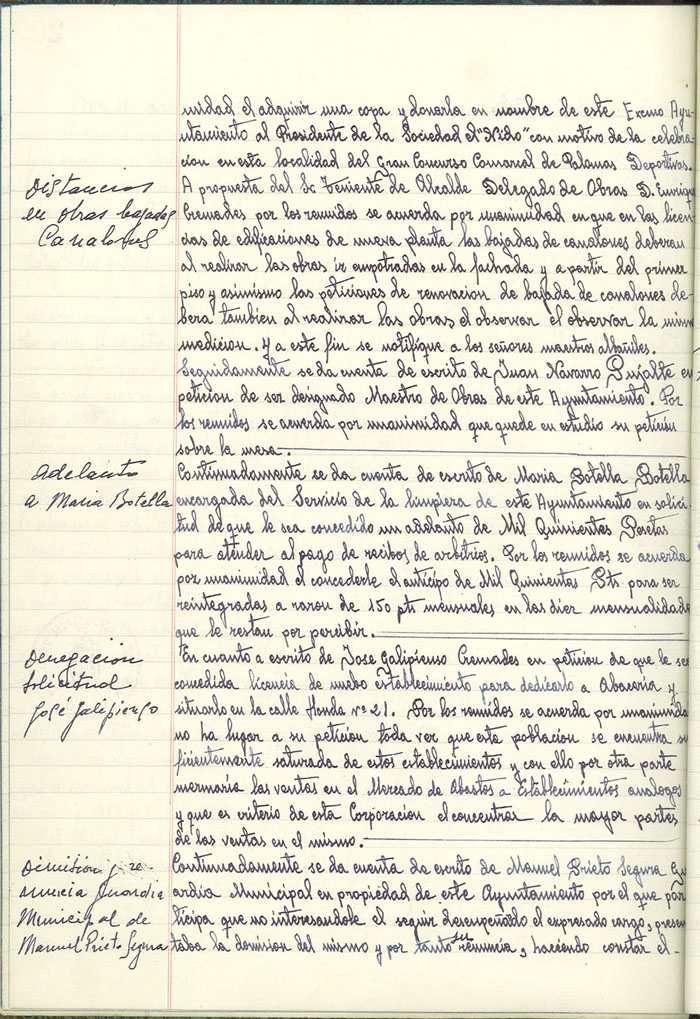 nidad el adquirir una copa y donarla en nombre de este Excmo Ayu-
ntamiento al Presidente de la Sociedad el "Nido" con motivo de la celebra
cion en esta localidad del Gran Concurso Comarcal de Palomas Deportivas.
Distancias
en obras bajadas
Canalones
A propuesta del Sr Teniente de Alcalde Delegado de Obras D. Enrique
Cremades por los reunidos se acuerda por unanimidad en que en las licen
cias de edificaciones de nueva planta las bajadas de canalones deberan
al realizar las obras ir empotradas en la fachada y a partir del primer
piso y asimismo las peticiones de renovacion de bajada de canalones de-
bera tambien al realizar las obras, el observar el observar la mism
medicion. Y a este fin se notifique a los señores maestros albañiles.
Seguidamente se da cuenta de escrito de Juan Navarro Pujalte en
peticion de ser designado Maestro de Obras de este Ayuntamiento. Por
los reunidos se acuerda por unanimidad que quede en estudio su peticion
sobre la mesa.
Adelanto
a Maria Botella
Continuadamente se da cuenta de escrito de Maria Botella Botella
encargada del Servicio de la limpieza de este Ayuntamiento en solici-
tud de que le sea concedido un adelanto de Mil Quinientas Pesetas
para atender al pago de recibos de arbitrios. Por los reunidos se acuerda
por unanimidad el concederle el anticipo de Mil Quinientas Pts para ser
reintegradas a razon de 150 pts mensuales en las diez mensualidade
que le restan por percibir.
Denegacion
Solicitud
José Galipienso
En cuanto a escrito de Jose Galipienso Cremades en peticion de que le se
concedida licencia de nuebo establecimiento para dedicarlo a Abaceria y
situarlo en la calle Honda nº 21. Por los reunidos se acuerda por unanimida
no ha lugar a su peticion toda vez que esta poblacion se encuentra su
ficientemente saturada de estos establecimientos y con ello por otra parte
mermaria las ventas en el Mercado de Abastos a Establecimientos analogos
y que es criterio de esta Corporacion el concentrar la mayor partes
de las ventas en el mismo.
Dimision y re-
nuncia guardia
Municipal de
Manuel Prieto Segura
Continuadamente se da cuenta de escrito de Manuel Prieto Segura Gu
ardia Municipal en propiedad de este Ayuntamiento por el que par
ticipa que no interesandole el seguir desempeñado el expresado cargo, presen
taba la domision del mismo y por tanto su renuncia, haciendo constar el-